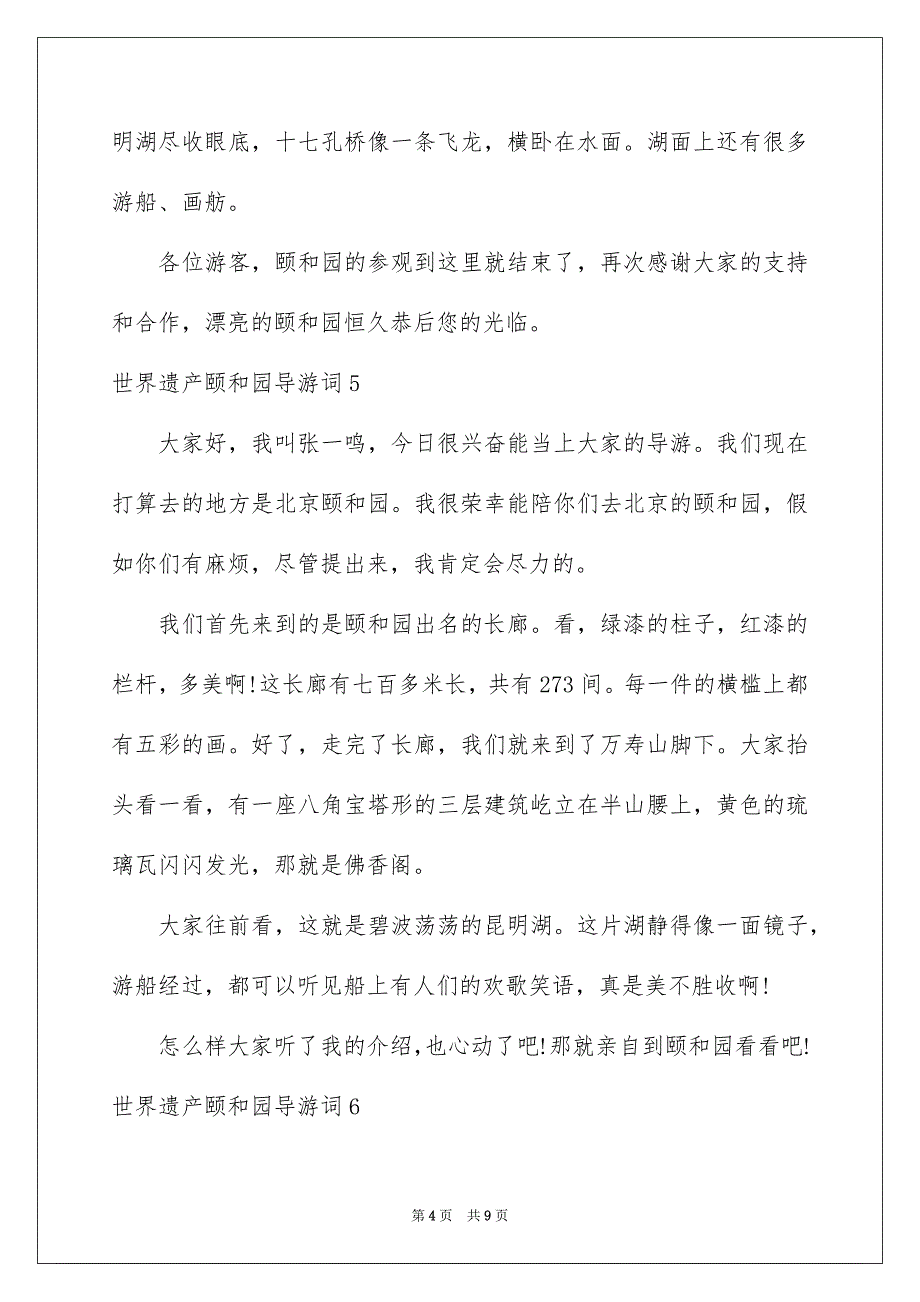 明湖尽收眼底，十七孔桥像一条飞龙，横卧在水面。湖面上还有很多
游船、画舫。
各位游客，颐和园的参观到这里就结束了，再次感谢大家的支持
和合作，漂亮的颐和园恒久恭后您的光临。
世界遗产颐和园导游词 5
大家好，我叫张一鸣，今日很兴奋能当上大家的导游。我们现在
打算去的地方是北京颐和园。我很荣幸能陪你们去北京的颐和园，假
如你们有麻烦，尽管提出来，我肯定会尽力的。
我们首先来到的是颐和园出名的长廊。看，绿漆的柱子，红漆的
栏杆，多美啊!这长廊有七百多米长，共有 273 间。每一件的横槛上都
有五彩的画。好了，走完了长廊，我们就来到了万寿山脚下。大家抬
头看一看，有一座八角宝塔形的三层建筑屹立在半山腰上，黄色的琉
璃瓦闪闪发光，那就是佛香阁。
大家往前看，这就是碧波荡荡的昆明湖。这片湖静得像一面镜子，
游船经过，都可以听见船上有人们的欢歌笑语，真是美不胜收啊!
怎么样大家听了我的介绍,也心动了吧!那就亲自到颐和园看看吧!
世界遗产颐和园导游词 6
第 4 页 共 9 页